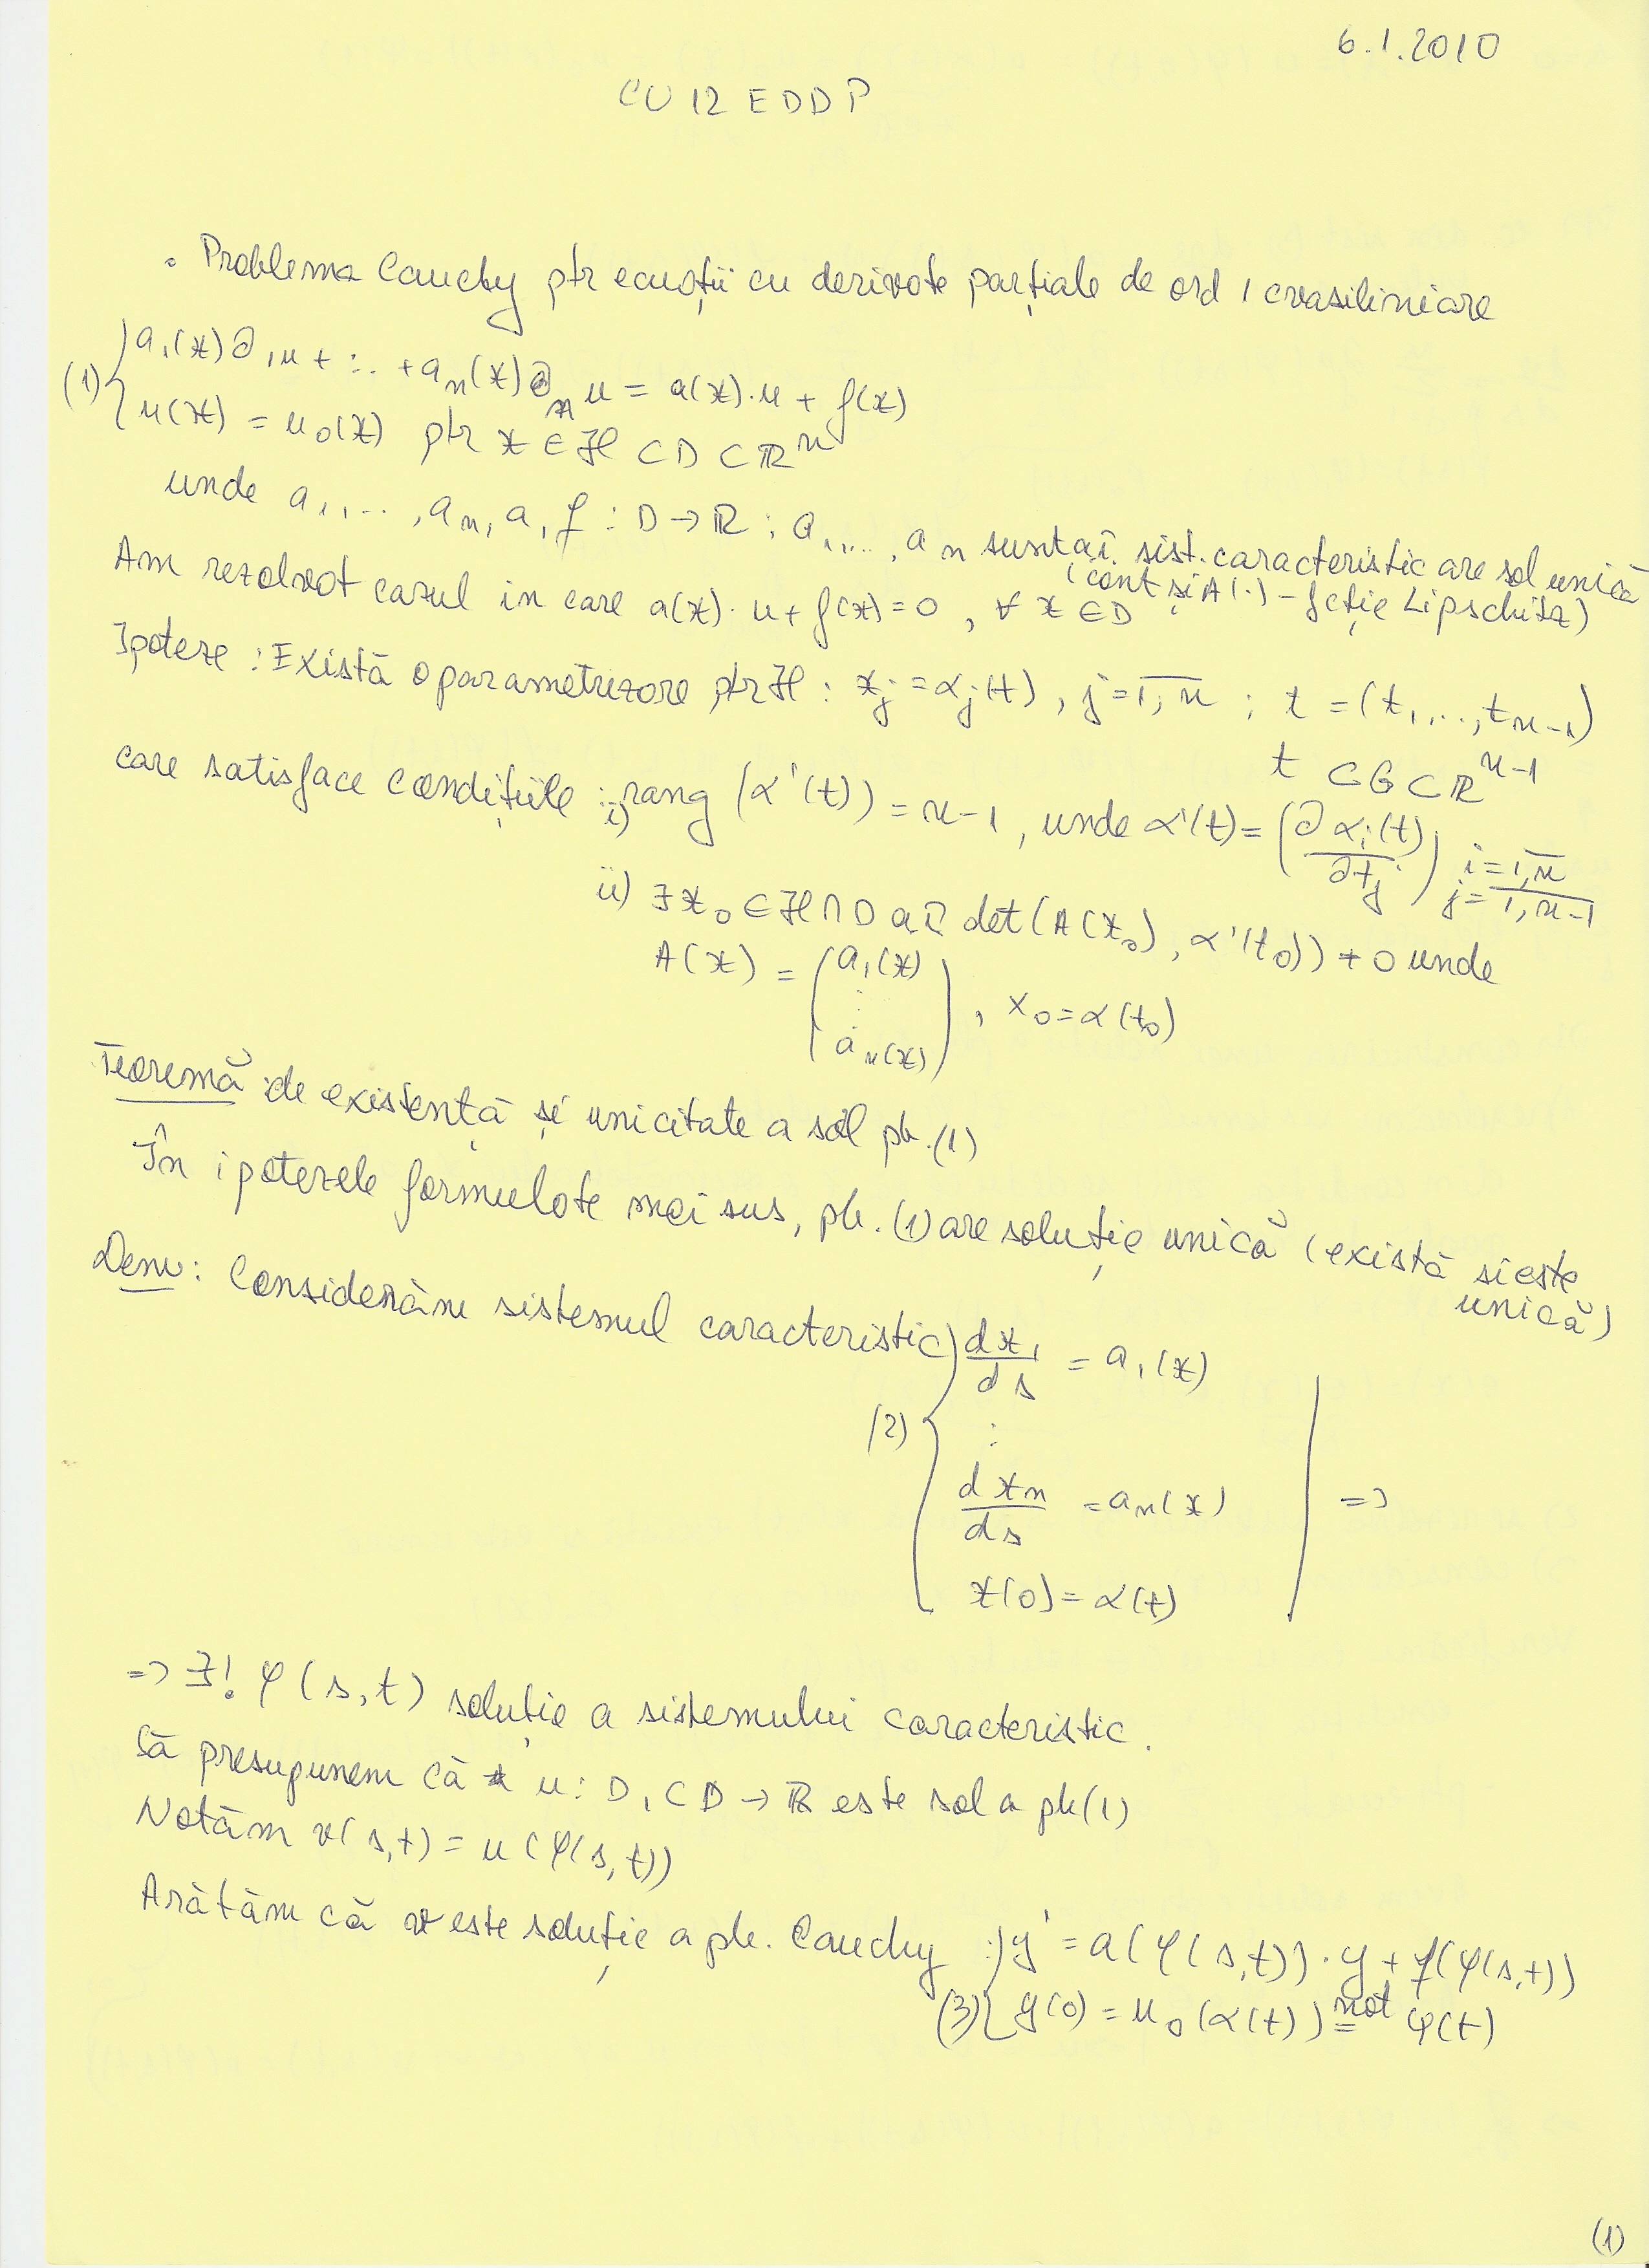 6.1.2010
CU 12 EDDP
• Problema Cauchy ptr ecuații cu derivate parțiale de ord 1 cvasiliniare
(1) { a₁(x)∂₁u + ... + aₙ(x)∂ₙu = a(x)·u + f(x)
u(x) = u₀(x) ptr x ∈ ℋ ⊂ D ⊂ ℝⁿ
unde a₁,..., aₙ, a, f : D → ℝ ; a₁,..., aₙ sunt aî. sist. caracteristic are sol unică
(cont și A(·) - fcție Lipschitz)
Am rezolvat cazul in care a(x)·u + f(x) = 0, ∀ x ∈ D
Ipoteze : Există o parametrizare ptr ℋ : xⱼ = αⱼ(t), j = 1,n ; t = (t₁,..., tₙ₋₁)
t ⊂ G ⊂ ℝⁿ⁻¹
care satisface condițiile : i) rang (α'(t)) = n-1, unde α'(t) = (∂αᵢ(t)/∂tⱼ) i = 1,n j = 1,n-1
ii) ∃ x₀ ∈ ℋ ∩ D aî det(A(x₀), α'(t₀)) ≠ 0 unde
A(x) = (a₁(x) ⋮ aₙ(x)), x₀ = α(t₀)
Teoremă de existență și unicitate a sol pb. (1)
În ipotezele formulate mai sus, pb. (1) are soluție unică (există si este
unică)
Dem: Considerăm sistemul caracteristic
(2) { dx₁/ds = a₁(x)
⋮
dxₙ/ds = aₙ(x) | =>
x(0) = α(t)
=> ∃! φ(s,t) soluție a sistemului caracteristic.
Să presupunem că u : D₁ ⊂ D → ℝ este sol a pb (1)
Notăm v(s,t) = u(φ(s,t))
Arătăm că v este soluție a pb. Cauchy :
(3) { y' = a(φ(s,t))·y + f(φ(s,t))
y(0) = u₀(α(t)) not= φ(t)
(1)